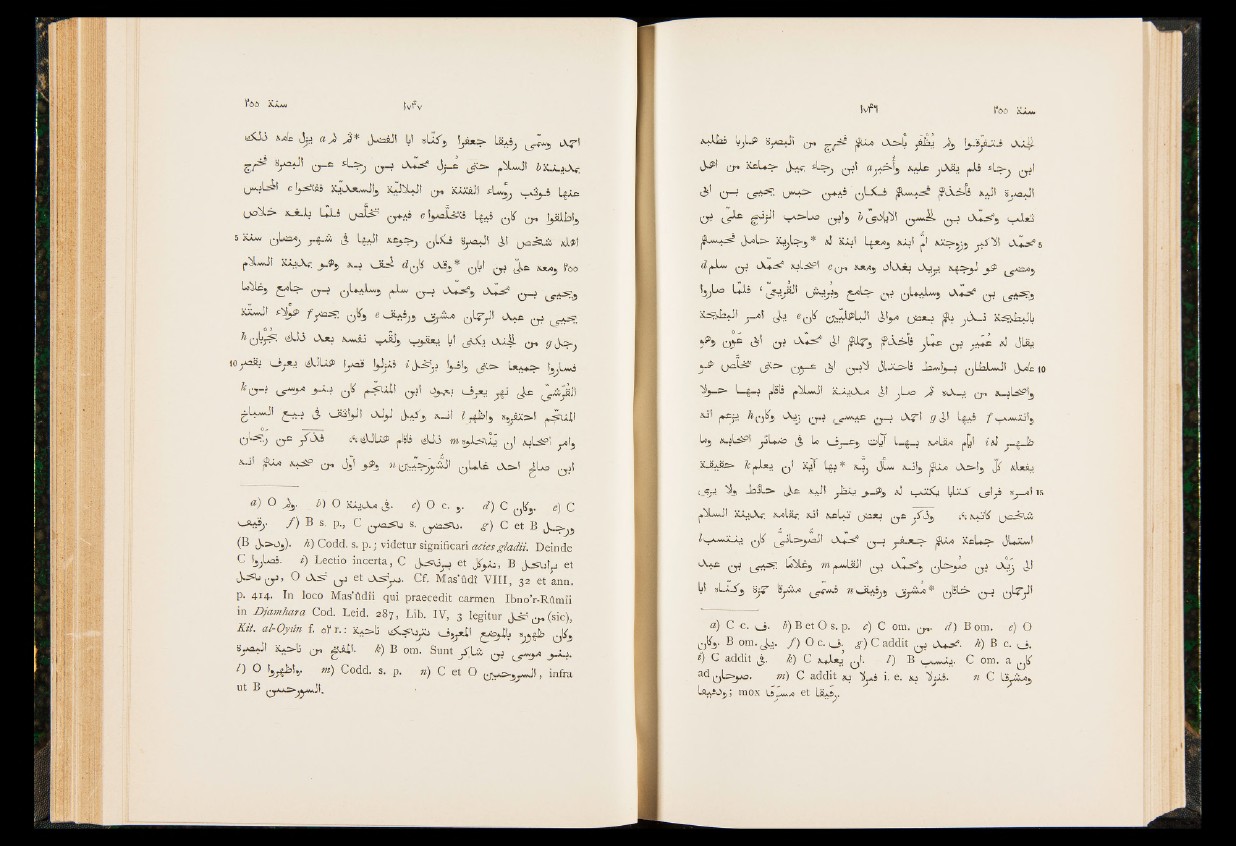 ١٧٤٦ سنة ٢٥٥
للجند فتفرّقوا ولم يظفر بأحد منهم فخرج من البصرة هاربا فطلبه
ابن رجاء فلم يقدر عليه وأُخبر a ابن رجاء بميل جماعة من اهل
البصرة اليه فأخذهم فحبسهم فكان فيمن حبس يحيى بن ابى
ثعلب ومحمّد بن الحسن الايادىّ b وابن صاحب الزنج علىّ بن
5 محمّد الاكبر وزوجته امّ ابنه ومعها ابنة له *وجارية حامل فحبسهم
ومضى هو لوجهه يريد بغداد ومعه من c اصحابه محمّد بن سلم d
ويحيى بن محمّد وسليمان بن جامع وبريش القريعىّ، فلمّا صاروا
بالبطيحة نذر بهم بعض موالى الباهليّين كان e يلى امر البطيحة
يقال له عمير بن عمّار فأخذهم وحملهم الى محمّد بن ابى عون وهو
10 عامل السلطان بواسط فاحتال لابن ابى عون حتى تخلّص هو
واصحابه من يده ثم صار الى مدينة السلام فأقام بها حولا
وانتسب f فيها الى g احمد بن عيسى بن زيد وكان h يزعم انه
ظهر له i ايّام مقامه بها آيات وعرف ما فى ضمائر اصحابه وما
يفعله كلّ واحد منهم وانه سأل ربّه *بها آية ان يعلم k حقيقة
15 امره فرأى كتابا يكتب له وهو ينظر اليه على حائط ولا يرى
شخص كاتبه، وذكر عن بعض تبّاعه انه بمقامه بمدينة السلام
استمال جماعة منهم جعفر بن محمّد الصوحانىّ كان ينتسب l
الى زيد بن صوحان ومحمّد بن القاسم m وغلاما يحيى بن عبد
الرحمان بن خاقان *مشرق ورفيق n فسمّى مشرقا حمزة وكنّاه ابا
a) C c. ف. b) B et O s. p. c) C om. من. d) B om. e) O
وكان. B om. يلى. f) O c. ف. g) C addit محمد بن. h) B c. ف.
i) C addit فى. k) C ان يعلمه. l) B ينسب. C om. a كان
ad صوحان. m) C addit فنزلا به i. e. فنزلا به. n C ومشرقا
ورفيقا; mox مشرفا et رفيقا.
سنة ٢٥٥ ١٧٤٧
احمد وسمّى رفيقا جعفرا وكنّاه ابا الفضل *ثم لم a يزل عامه ذلك
بمدينة b السلام حتى عزل محمّد بن رجاء عن البصرة فخرج
عنها فوثب رؤساء الفتنة من البلاليّة والسعديّة ففتحوا c المحابس
واطلقوا من كان فيها فتخلّصوا e فيمن تخلّص فلمّا بلغه خلاص
5 اهله شخص الى البصرة فكان رجوعه اليها فى شهر رمضان سنة
٢٥٥ ومعه علىّ بن ابان *وقد كان d لحق به وهو بمدينة السلام
ويحيى بن محمّد ومحمّد بن سلم وسليمان بن جامع وغلاما
يحيى بن عبد الرحمان مشرق ورفيق e وكان يحضر f هؤلاء الستّة
رجل g من الجند يكنى ابا يعقوب ولقّب نفسه بعد ذلك بجربان h
10 فساروا جميعا حتى وافوا برنخل i فنزلوا قصرا هنالك يعرف بقصر
القرشىّ على نهر يعرف بعمود ابن المنجّم كان بنو موسى بن k
المنجّم احتفروه واظهر l انه وكيل لولد الواثق فى بيع السباخ
وامر اصحابه ان ينحلوه m ذلك فأقام هنالك، فذكر عن ريحان
ابن صالح احد غلمان الشورجيّين n وهو اوّل من صحبه منهم انه
a) O ولم. b) O فى مدينة. c) O c. و. d) C وكان. e) C
رفيف. f) B s. p., C s. g) C et B ورجل
(B ودخل). h) Codd. s. p.; videtur significari acies gladii. Deinde
C فصاروا. i) Lectio incerta, C et B et
O et Cf. Mas'ûdî VIII, 32 et ann.
p. 414. In loco Mas'ûdii qui praecedit carmen Ibno'r-Rûmîi
in Djamhara Cod. Leid. 287, Lib. IV, 3 legitur (sic),
Kit. al-Oyûn f. ٥٢ r.: ناحية المعروف بالموضع وكان ظهوره
من المفتح ناحية البصرة. k) B om. Sunt بنو موسى بن شاكر.
l) O واظهروا. m) Codd. s. p. n) C et O السورحيين, infra
ut B السورحيين.